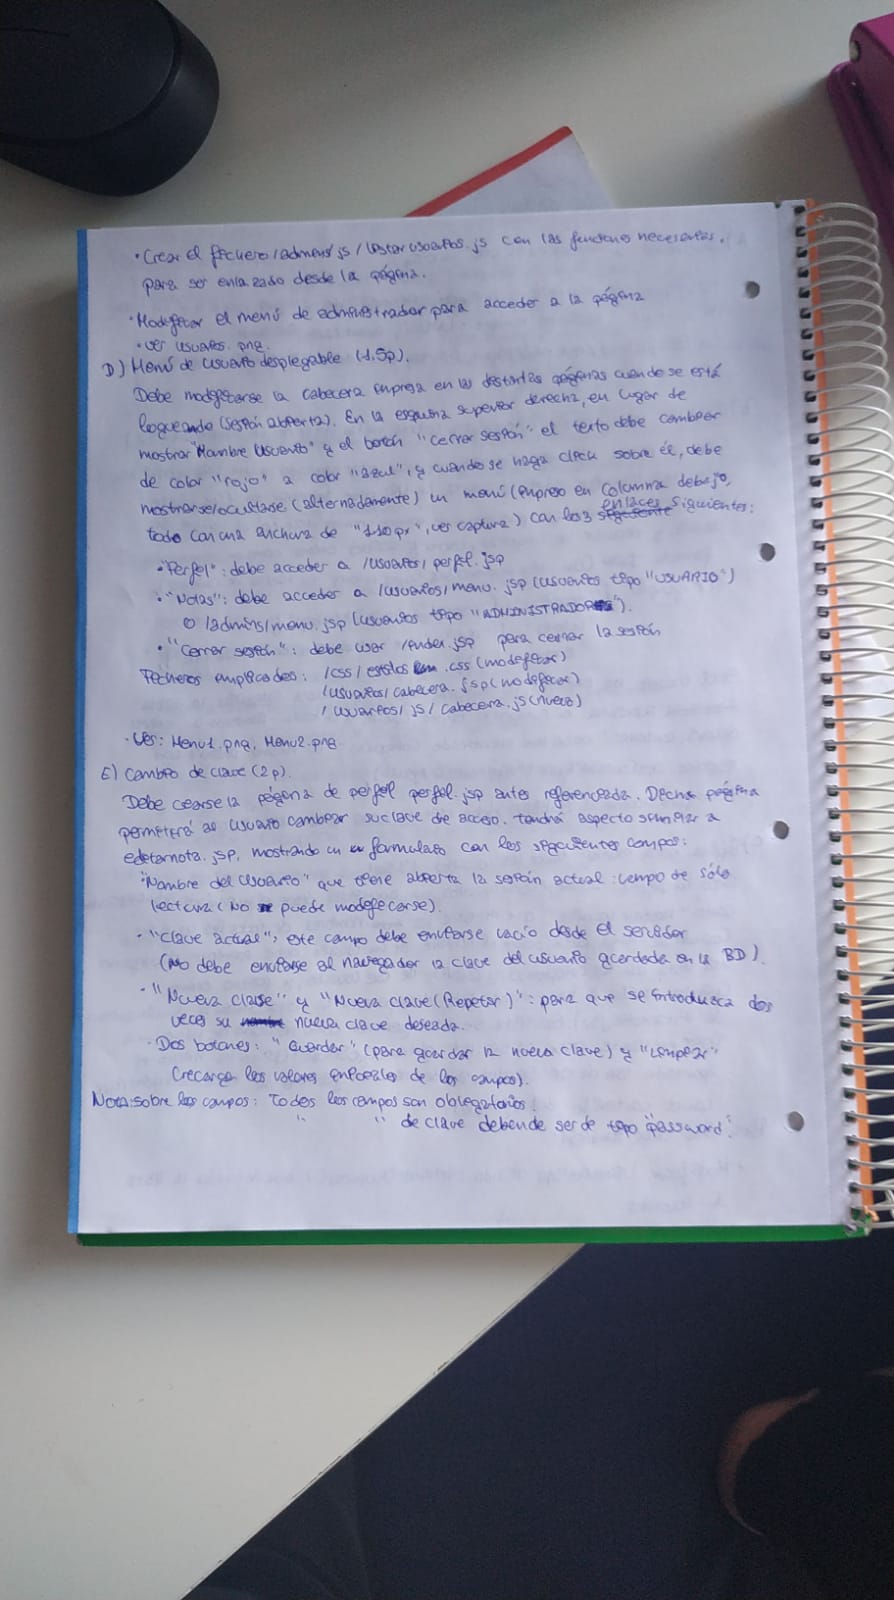 · Crear el fichero /admins/js/listarusuarios.js con las funciones necesarias,
para ser enlazado desde la página.
· Modificar el menú de administrador para acceder a la página
· ver usuarios.png.
D) Menú de usuario desplegable (1,5p).
Debe modificarse la cabecera impresa en las distintas páginas cuando se está
logueando (sesión abierta). En la esquina superior derecha, en lugar de
mostrar "Nombre Usuario" y el botón "cerrar sesión" el texto debe cambiar
de color "rojo" a color "azul", y cuando se haga click sobre él, debe
mostrarse/ocultarse (alternadamente) un menú (impreso en columna debajo,
todo con una anchura de "110px", ver captura) con los 3 enlaces siguientes:
· "Perfil": debe acceder a /usuarios/perfil.jsp
· "Notas": debe acceder a /usuarios/menu.jsp (usuarios tipo "USUARIO")
o /admins/menu.jsp (usuarios tipo "ADMINISTRADOR").
· "Cerrar sesión": debe usar /index.jsp para cerrar la sesión
Ficheros implicados: /css/estilos.css (modificar)
/usuarios/cabecera.jsp (modificar)
/usuarios/js/cabecera.js (nuevo)
· Ver: Menu1.png, Menu2.png
E) Cambio de clave (2p).
Debe crearse la página de perfil perfil.jsp antes referenciada. Dicha página
permitirá al usuario cambiar su clave de acceso. tendrá aspecto similar a
editarnota.jsp, mostrando un formulario con los siguientes campos:
"Nombre del usuario" que tiene abierta la sesión actual: campo de sólo
lectura (No puede modificarse).
· "Clave actual", este campo debe enviarse vacío desde el servidor
(No debe enviarse al navegador la clave del usuario guardada en la BD).
· "Nueva clave" y "Nueva clave (Repetir)": para que se introduzca dos
veces su nueva clave deseada.
· Dos botones: "Guardar" (para guardar la nueva clave) y "Limpiar"
(recarga los valores iniciales de los campos).
Nota: sobre los campos: Todos los campos son obligatorios.
" " de clave deben de ser de tipo "password".